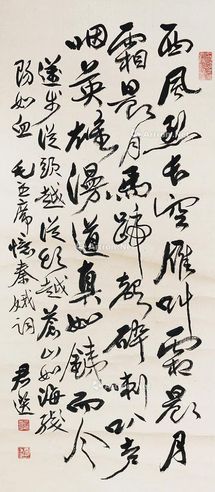 西风烈长空雁叫霜晨月
霜晨月马蹄声碎喇叭声
咽英雄漫道真如铁而今
迈步从头越从头越苍山如海残
阳如血 毛主席忆秦娥词 君选